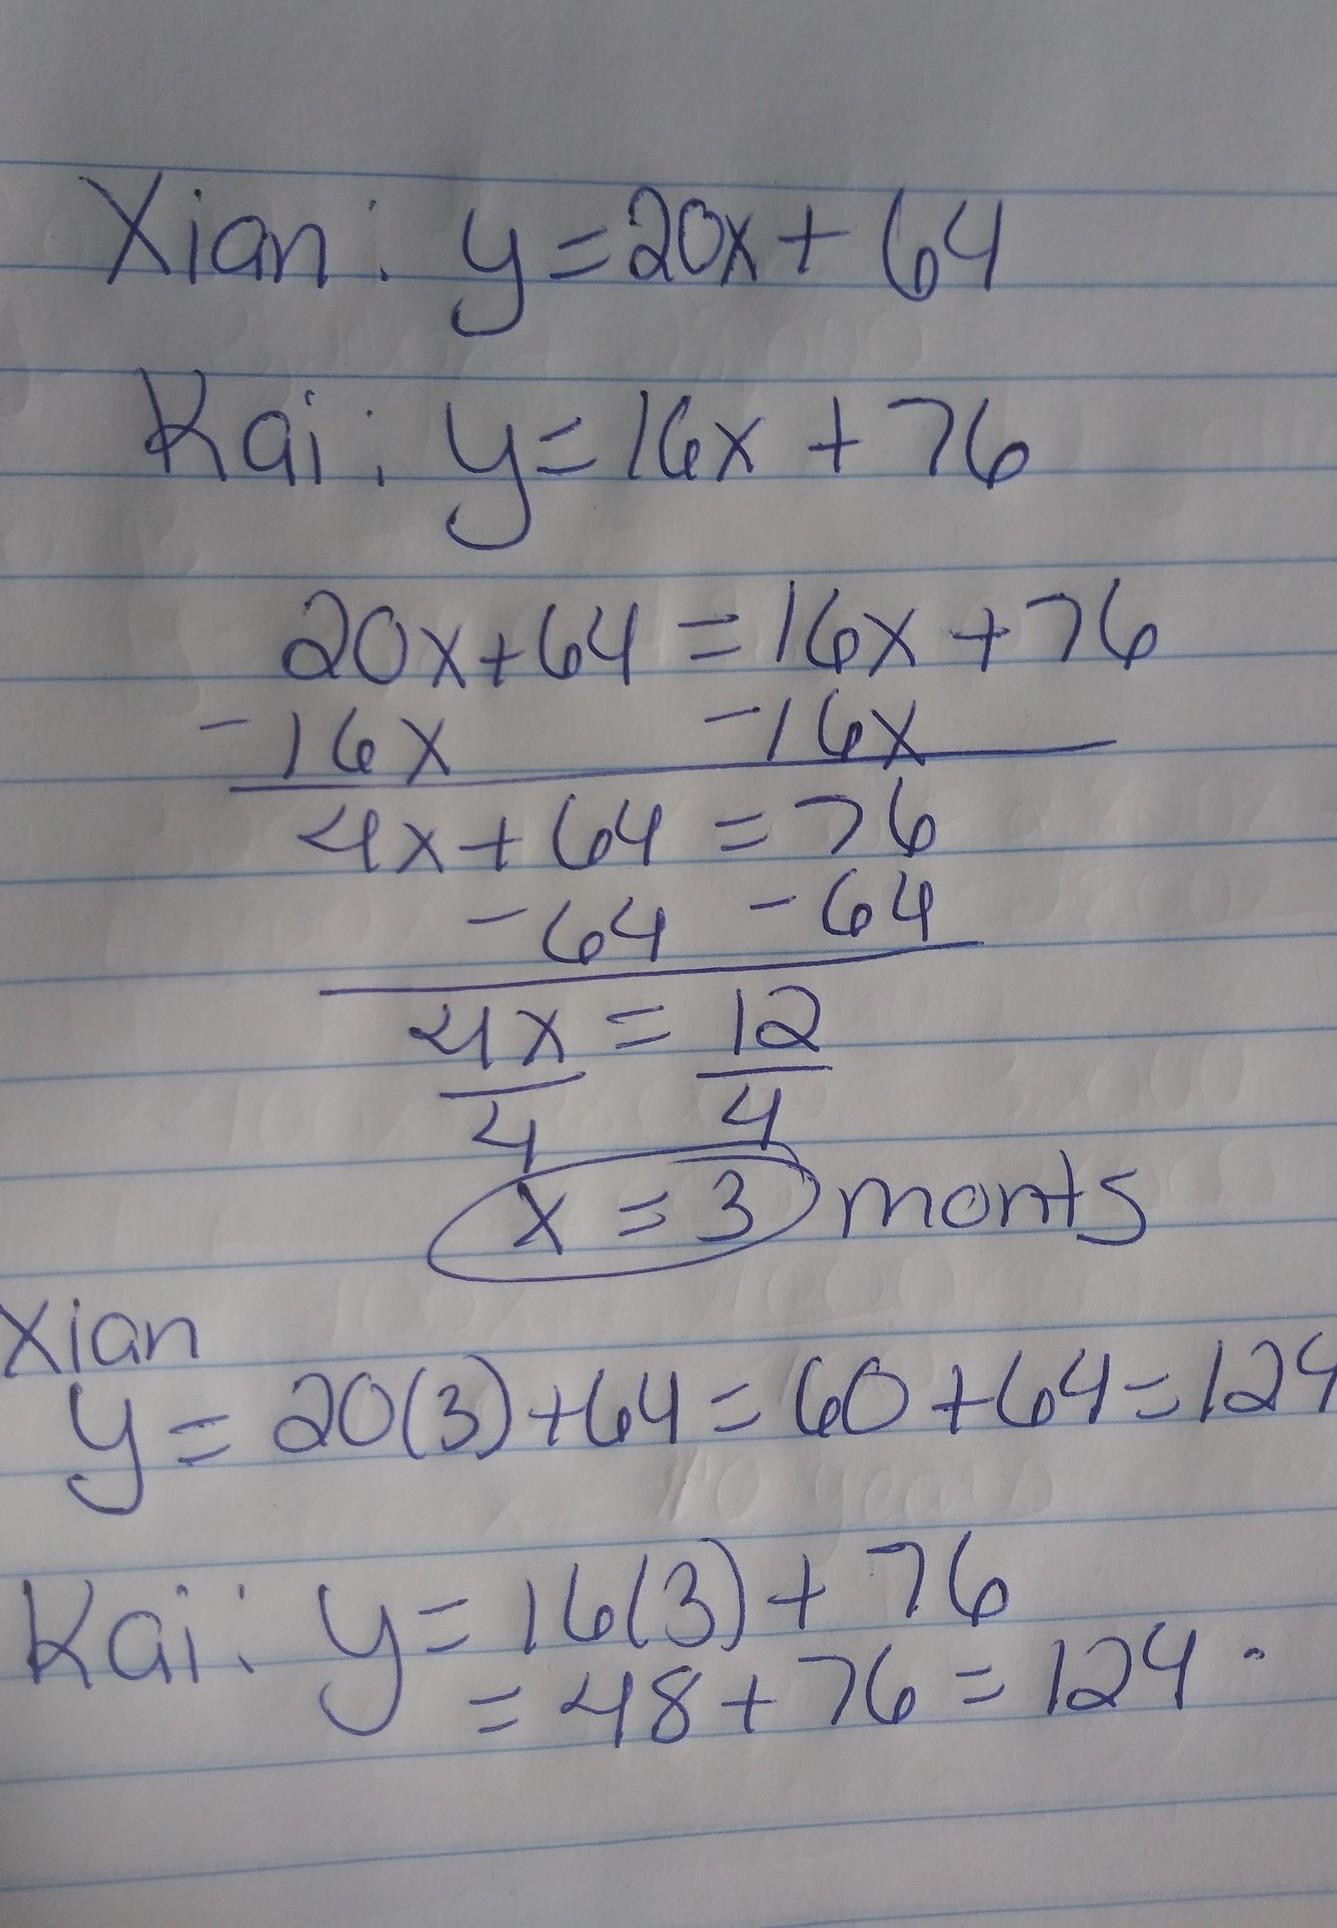 Xian: y = 20x + 64
Kai: y = 16x + 76
20x + 64 = 16x + 76
-16x -16x
4x + 64 = 76
-64 -64
4x = 12
4 4
x = 3 monts
Xian
y = 20(3) + 64 = 60 + 64 = 124
Kai: y = 16(3) + 76
= 48 + 76 = 124.